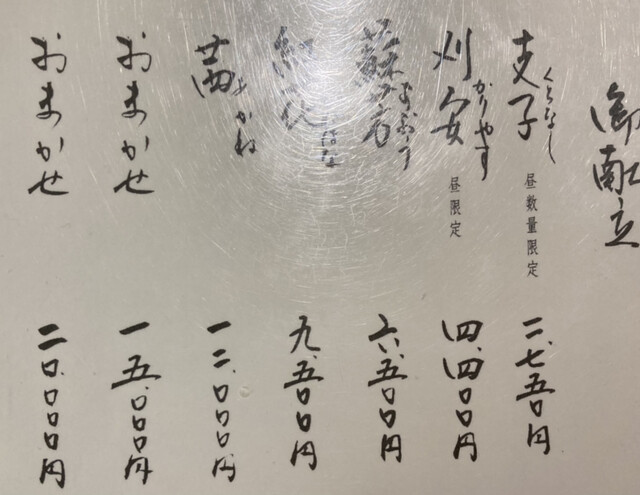 御献立
支子 くちなし 昼数量限定 二、七五〇円
刈安 かりやす 昼限定 四、四〇〇円
蘇芳 六、五〇〇円
紅花 九、五〇〇円
茜 あかね 一二、〇〇〇円
おまかせ 一五、〇〇〇円
おまかせ 二〇、〇〇〇円